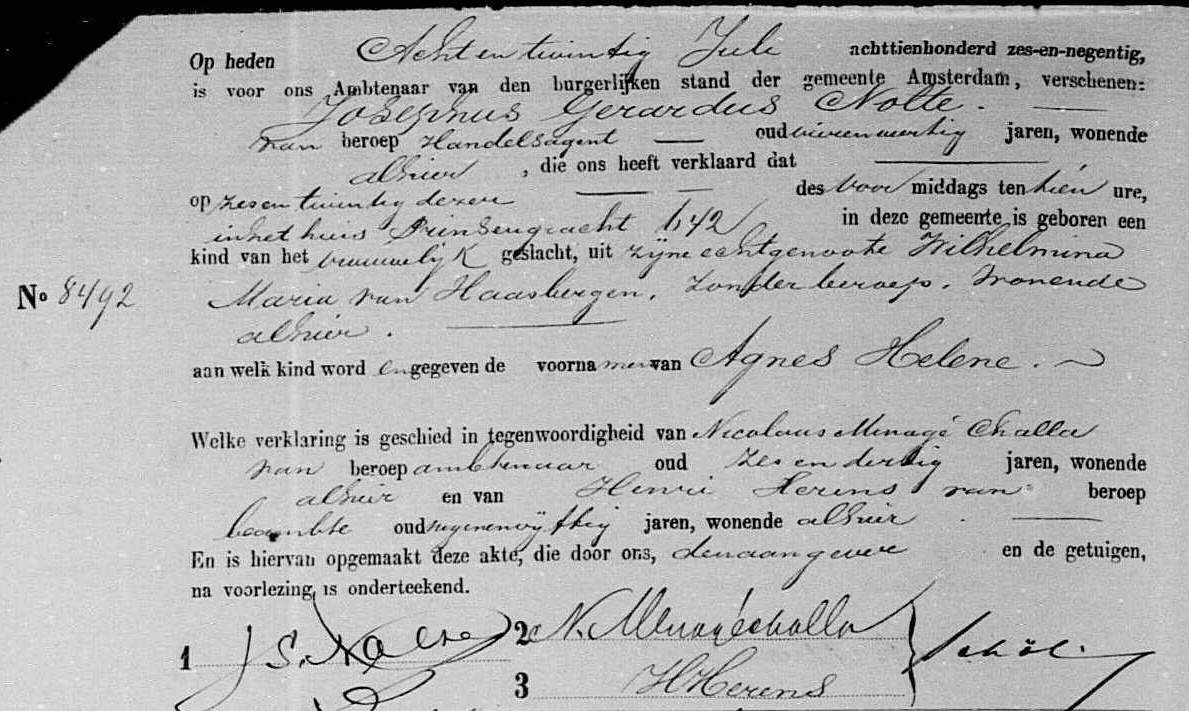 Op heden Acht en twintig Juli achttienhonderd zes-en-negentig,
is voor ons Ambtenaar van den burgerlijken stand der gemeente Amsterdam, verschenen:
Josephus Gerardus Nolte.
van beroep Handelsagent oud vierenveertig jaren, wonende
alhier, die ons heeft verklaard dat
op zes en twintig dezer des voor middags ten tien ure,
in het huis Prinsengracht 642 in deze gemeente is geboren een
kind van het vrouwelijk geslacht, uit zijne echtgenoote Wilhelmina
No 8492 Maria van Haasbergen, zonder beroep, wonende
alhier.
aan welk kind word en gegeven de voorna men van Agnes Helene.
Welke verklaring is geschied in tegenwoordigheid van Nicolaas Menagé Challa
van beroep ambtenaar oud zes en dertig jaren, wonende
alhier en van Henri Herens van beroep
beambte oud negenenvijftig jaren, wonende alhier.
En is hiervan opgemaakt deze akte, die door ons, den aangever en de getuigen,
na voorlezing is onderteekend.
1 J. G. Nolte 2 N. Menagé Challa
3 H Herens